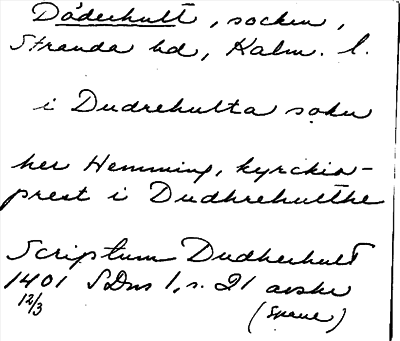 Döderhult, socken,
Stranda hd, Kalm. l.
i Dudrehulta sokn
her Hemming, kyrckio-
prest i Dudhrehultthe
Scriptum Dudherhult
1401 SDns 1, s. 21 avskr
12/3